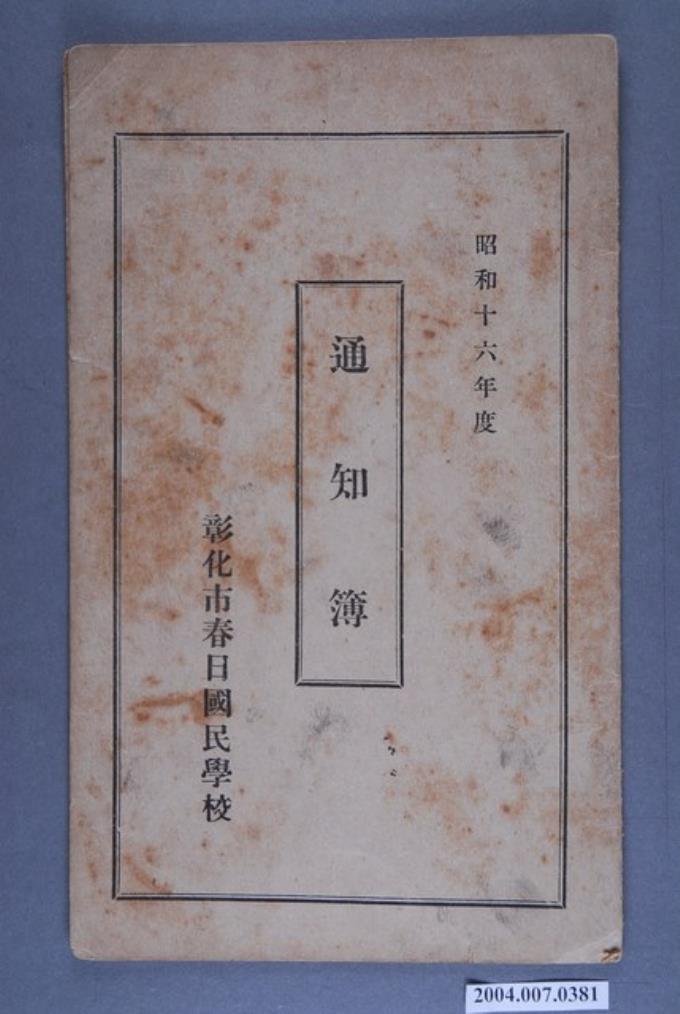 昭和十六年度
通知簿
彰化市春日國民學校
2004.007.0381